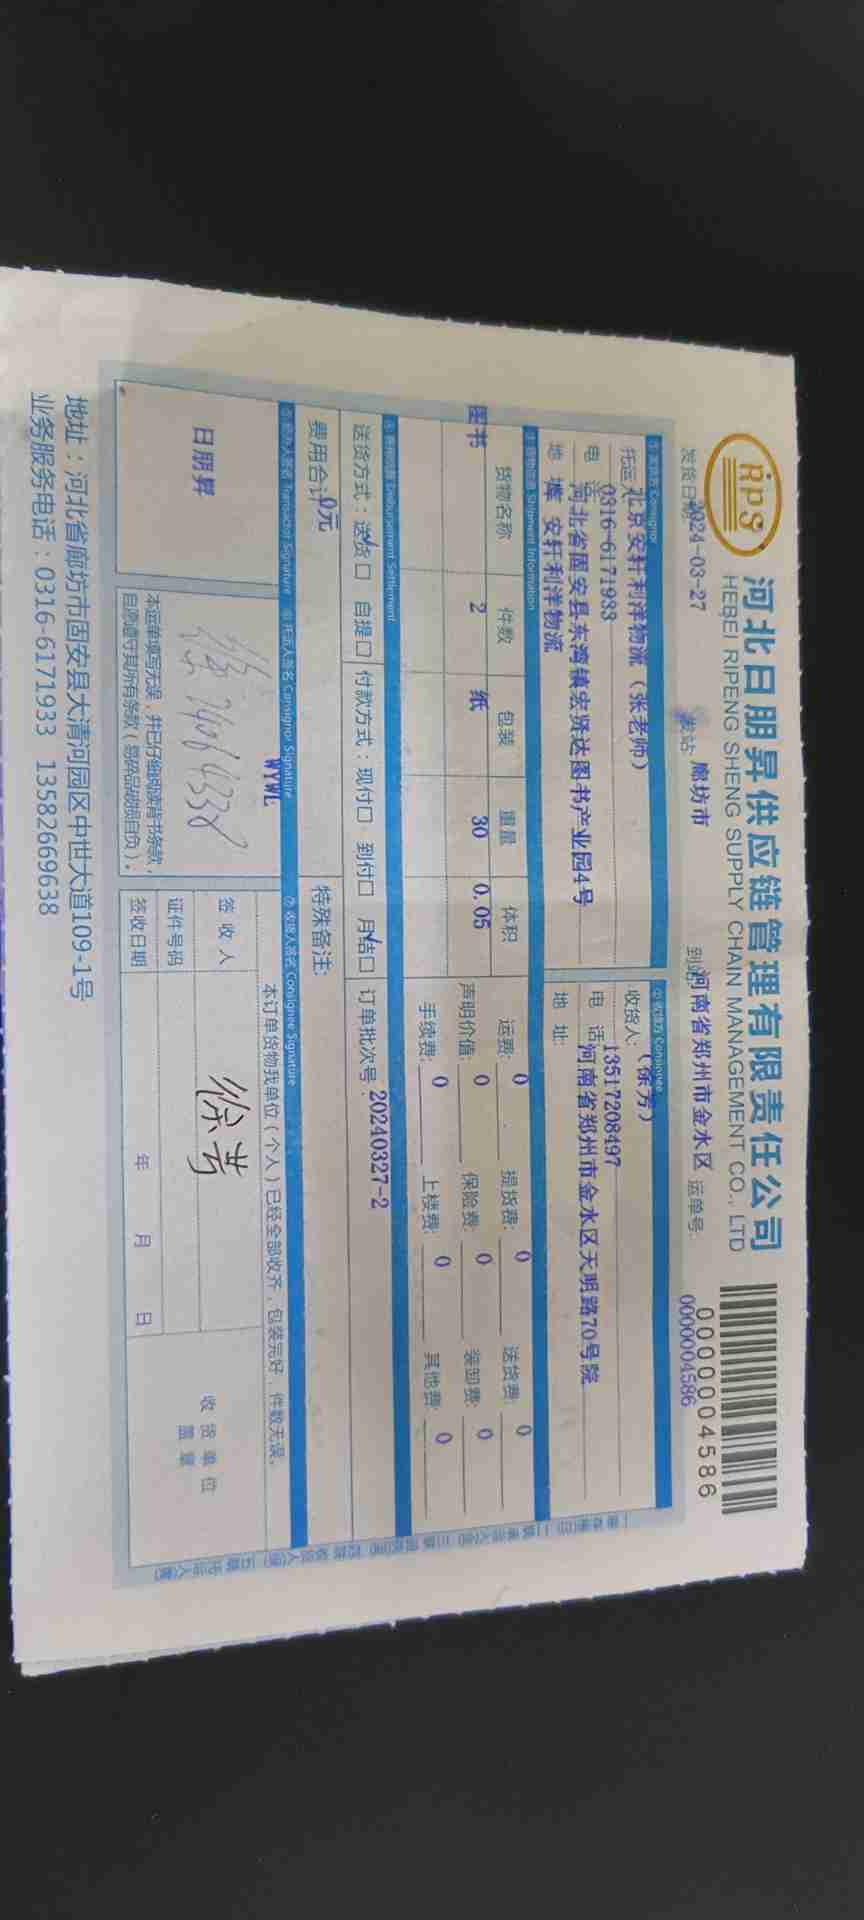 RiPS
河北日朋昇供应链管理有限责任公司
HEBEI RIPENG SHENG SUPPLY CHAIN MANAGEMENT CO., LTD
0000004586
发货日期 2024-03-27 发站 廊坊市 到站 河南省郑州市金水区 运单号: 0000004586
① 发货方 Consignor ② 收货方 Consignee
托运人 北京安轩利洋物流（张老师） 收货人: （徐芳）
电话 0316-6171933 电话 13517208497
河北省固安县东湾镇宏贤达图书产业园4号
地址 库 安轩利洋物流 地址: 河南省郑州市金水区天明路70号院
③ 货物信息 Shipment Information
货物名称 件数 包装 重量 体积 运费: 0 提货费: 0 送货费: 0
图书 2 纸 30 0.05 声明价值: 0 保险费: 0 装卸费: 0
手续费: 0 上楼费: 0 其他费: 0
④ 费用结算 Disbursement Settlement
送货方式: 送货☑ 自提□ 付款方式: 现付□ 到付□ 月结☑ 订单批次号: 20240327-2
费用合计 0元 特殊备注:
WYWL
⑤ 经办人签名 Transactor Signature ⑥ 托运人签名 Consignor Signature ⑦ 收货人签名 Consignee Signature
本订单货物我单位（个人）已经全部收齐，包装完好，件数无误。
日朋昇
签收人 徐芳
证件号码
签收日期 年 月 日
收货单位
盖章
本运单填写无误，并已仔细阅读背书条款，
自愿遵守其所有条款（易碎品破损自负）。
地址：河北省廊坊市固安县大清河园区中世大道109-1号
业务服务电话：0316-6171933 13582669638